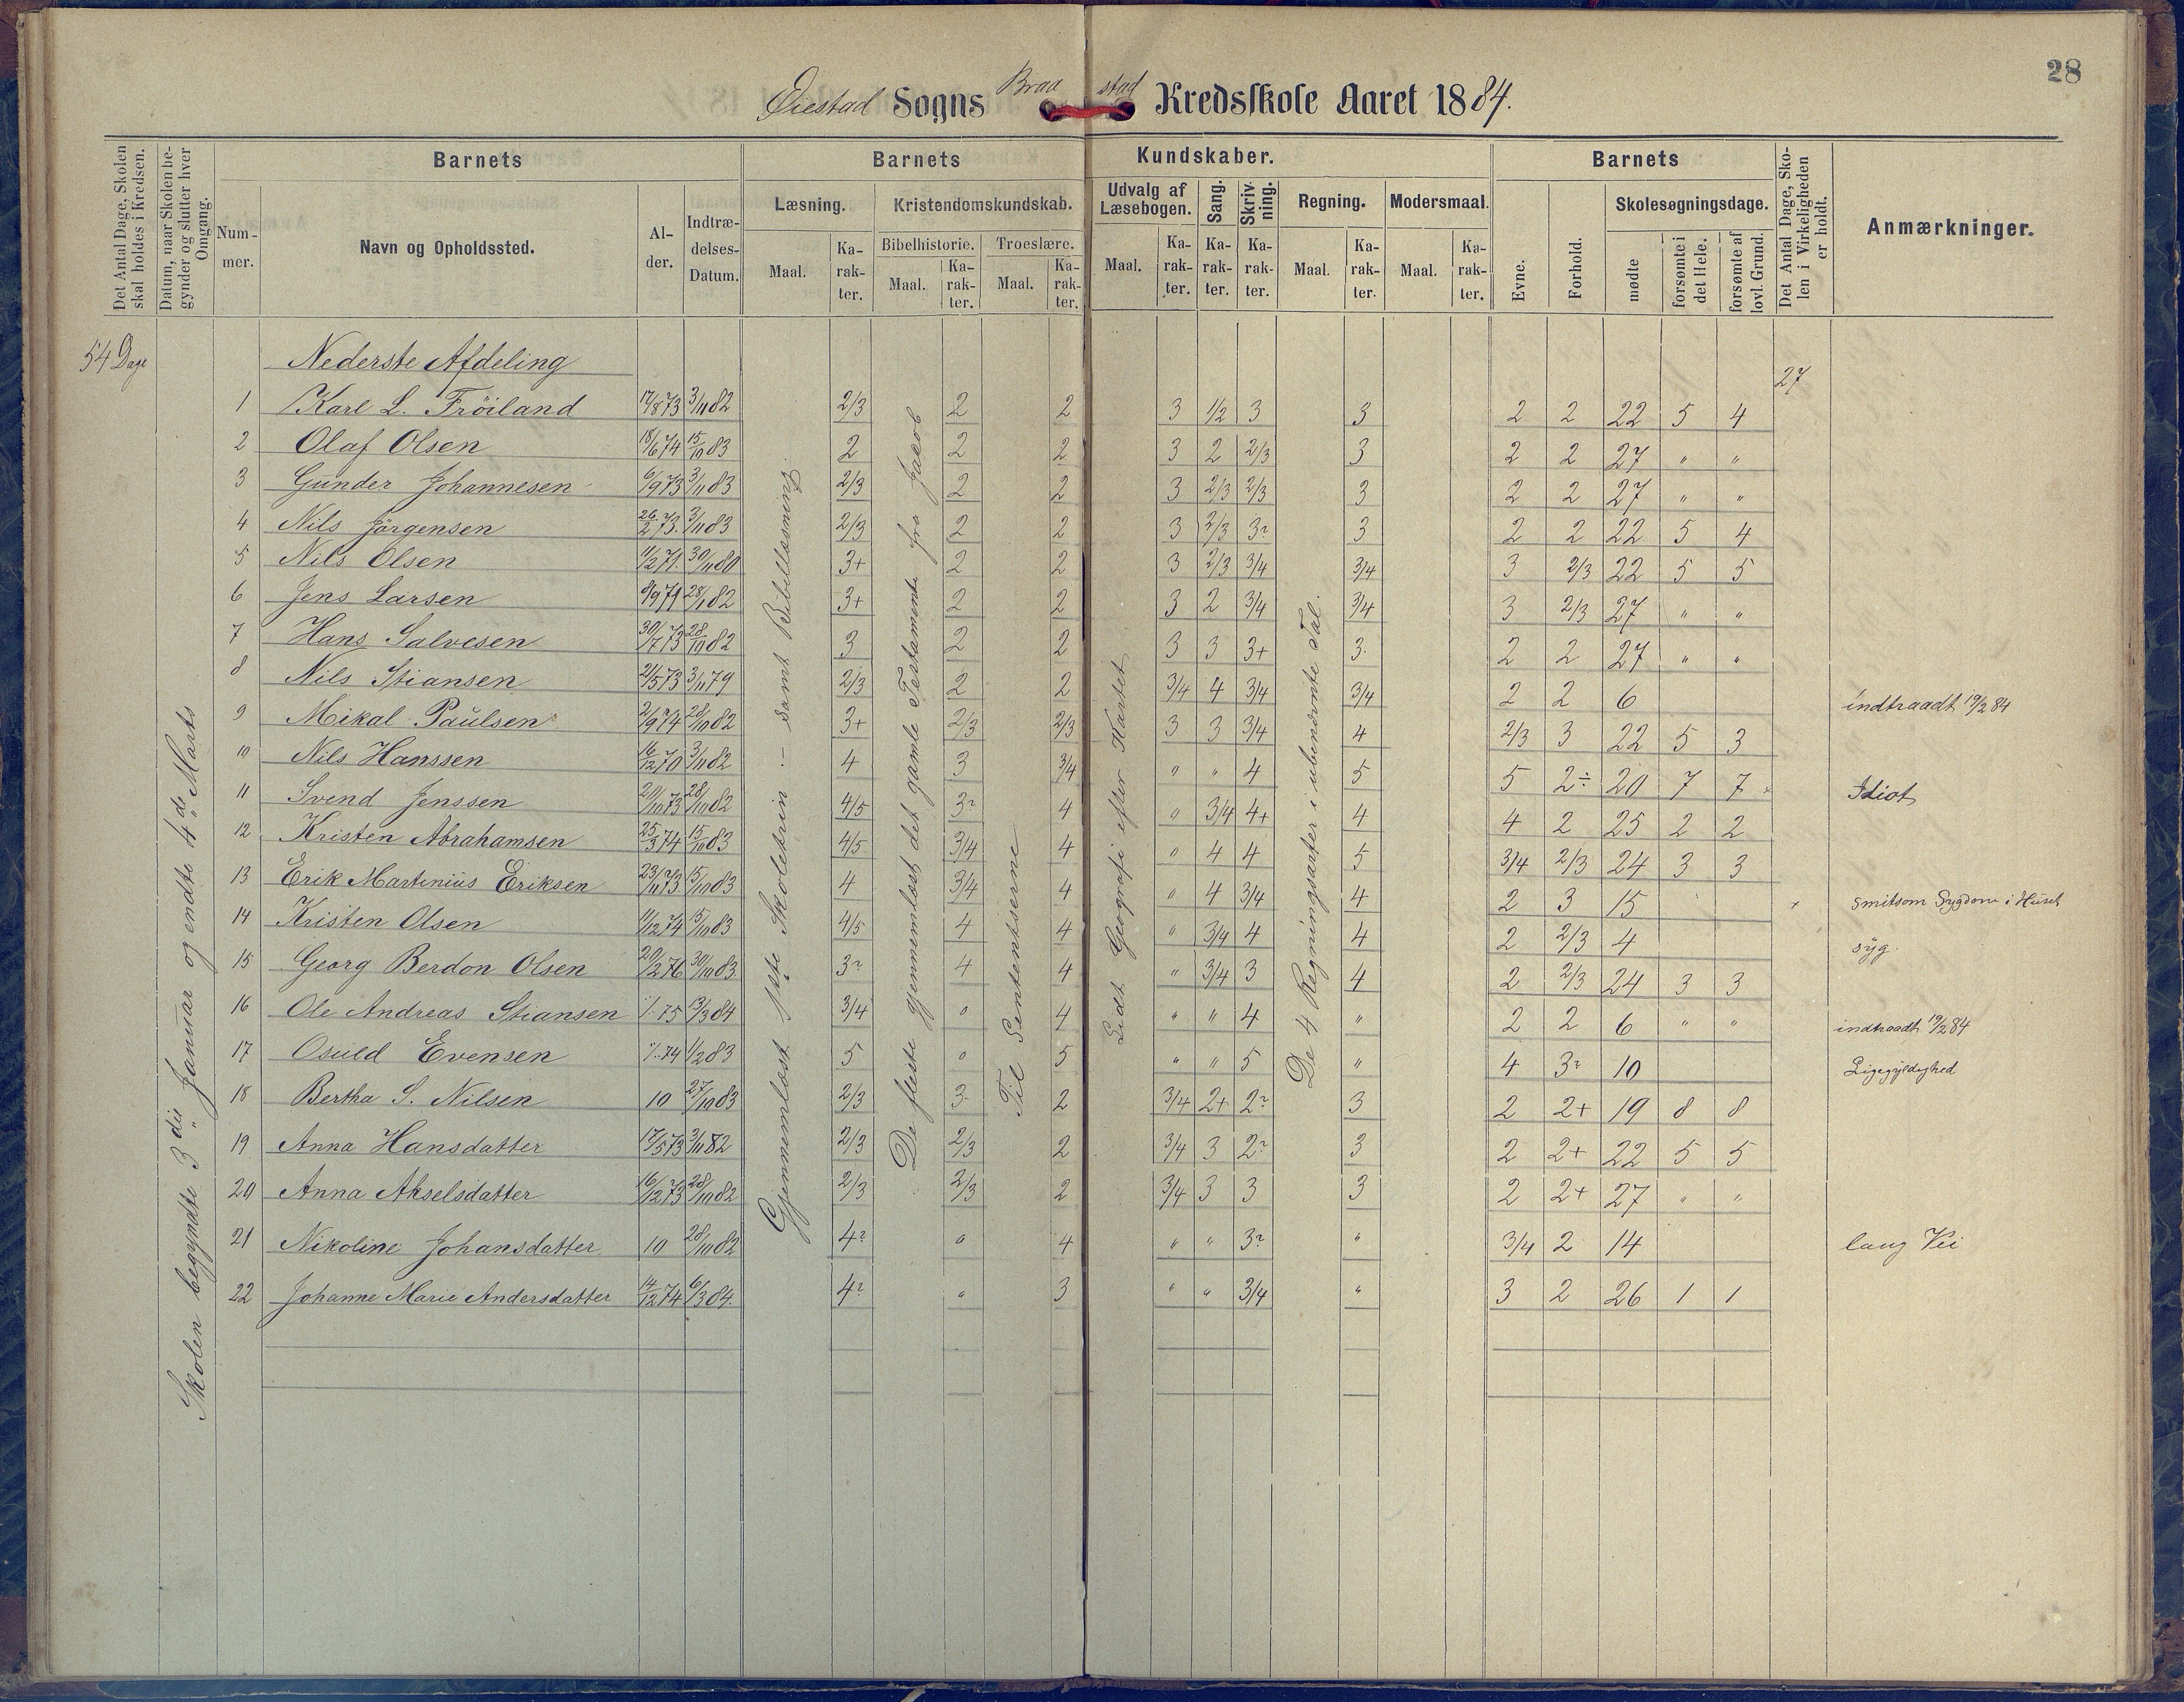 28
Øiestad Sogns Braastad Kredsskole Aaret 1884.
Det Antal Dage, Skolen skal holdes i Kredsen.
Datum, naar Skolen begynder og slutter hver Omgang.
Nummer.
Barnets
Navn og Opholdssted.
Alder.
Indtrædelses-Datum.
Barnets Kundskaber.
Læsning.
Maal. Karakter.
Kristendomskundskab.
Bibelhistorie. Troeslære.
Maal. Karakter. Maal. Karakter.
Udvalg af Læsebogen. Sang. Skrivning. Regning. Modersmaal.
Maal. Karakter. Karakter. Karakter. Maal. Karakter. Maal. Karakter.
Barnets
Evne. Forhold. Skolesøgningsdage.
mødte forsømte i det Hele. forsømte af lovl. Grund.
Det Antal Dage, Skolen i Virkeligheden er holdt.
Anmærkninger.
54 Dage
Skolen begyndte 3die Januar og endte 4de Marts
Gjennemlæst 1ste Skoletrin – samt Bibellæsning.
De fleste gjennemlæst det gamle Testamente fra Jacob
Til Sententserne
Lidt Geografi efter Kartet
De 4 Regningsarter i ubenævnte Tal.
Nederste Afdeling 27
1 Karl L. Fröiland 17/8 73 3/11 82 2/3 2 2 3 1/2 3 3 2 2 22 5 4
2 Olaf Olsen 18/6 74 15/10 83 2 2 2 3 2 2/3 3 2 2 27 " "
3 Gunder Johannesen 6/9 73 3/11 83 2/3 2 2 3 2/3 2/3 3 2 2 27 " "
4 Nils Jörgensen 26/2 73. 3/11 83 2/3 2 2 3 2/3 3? 3 2 2 22 5 4
5 Nils Olsen 11/2 71. 30/11 80 3+ 2 2 3 2/3 3/4 3/4 3 2/3 22 5 5
6 Jens Larsen 8/9 71 28/1 82 3+ 2 2 3 2 3/4 3/4 3 2/3 27 " "
7 Hans Salvesen 30/7 73 28/10 82 3 2 2 3 3 3+ 3. 2 2 27 " "
8 Nils Stiansen 21/5 73 3/11 79 2/3 2 2 3/4 4 3/4 3/4 2 2 6 indtraadt 19/2 84
9 Mikal Paulsen 2/9 74 28/10 82 3+ 2/3 2/3 3 3 3/4 4 2/3 3 22 5 3
10 Nils Hanssen 16/12 70 3/11 82 4 3 3/4 " " 4 5 5 2÷ 20 7 7 Idiot
11 Svend Jenssen 20/10 73 28/10 82 4/5 3? 4 " 3/4 4+ 4 4 2 25 2 2
12 Kristen Abrahamsen 25/3 74 15/10 83 4/5 3/4 4 " 4 4 5 3/4 2/3 24 3 3
13 Erik Martinius Eriksen 23/11 73 15/10 83 4 3/4 4 " 4 3/4 4 2 3 15 + smitsom Sygdom i Huset
14 Kristen Olsen 11/12 74 15/10 83 4/5 4 4 " 3/4 4 4 2 2/3 4 syg
15 Georg Berdon Olsen 20/2 76 30/10 83 3? 4 4 " 3/4 3 4 2 2/3 24 3 3
16 Ole Andreas Stiansen 75 13/3 84 3/4 " 4 " " 4 " 2 2 6 " " indtraadt 19/2 84
17 Osuld Evensen 74 1/2 83 5 " 5 " " 5 " 4 3? 10 Ligegyldighed
18 Bertha S. Nilsen 10 27/10 83 2/3 3 2 3/4 2+ 2? 3 2 2+ 19 8 8
19 Anna Hansdatter 17/5 73 3/11 82 2/3 2/3 2 3/4 3 2? 3 2 2+ 22 5 5
20 Anna Akselsdatter 16/12 73 28/10 82 2/3 2/3 2 3/4 3 3 3 2 2+ 27 " "
21 Nikoline Johansdatter 10 28/10 82 4? " 4 " " 3? " 3/4 2 14 lang Vei
22 Johanne Marie Andersdatter 14/12 74 6/3 84. 4? " 3 " " 3/4 " 3 2 26 1 1